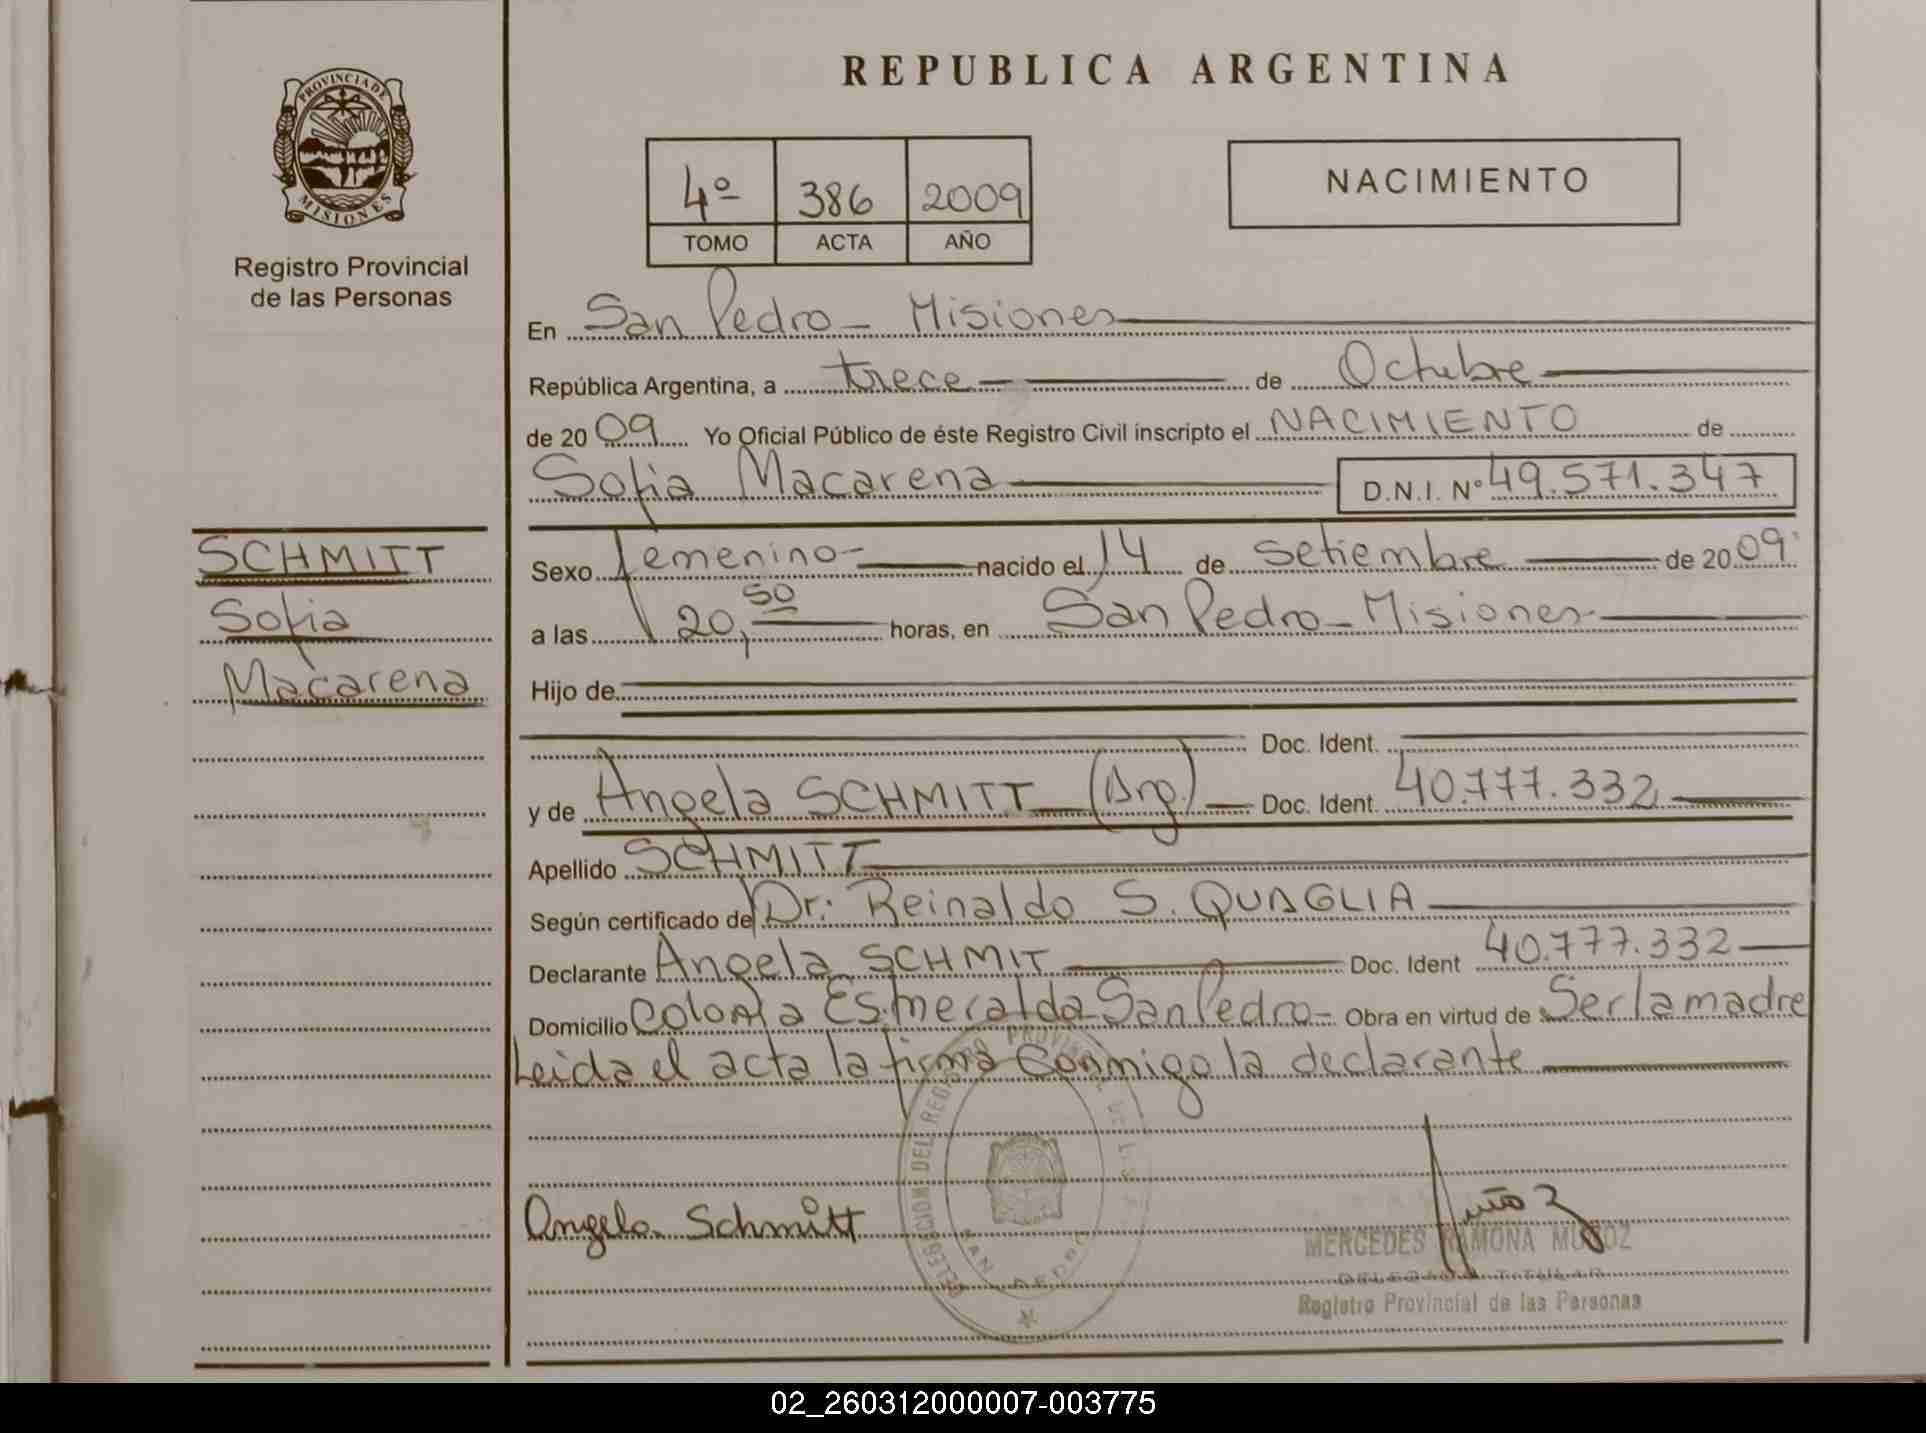 REPUBLICA ARGENTINA
PROVINCIA DE
MISIONES
Registro Provincial
de las Personas
4º 386 2009
TOMO ACTA AÑO
NACIMIENTO
En San Pedro - Misiones
República Argentina, a trece de Octubre
de 2009 Yo Oficial Público de éste Registro Civil inscripto el NACIMIENTO de
Sofia Macarena D.N.I. Nº 49.571.347
SCHMITT
Sofia
Macarena
Sexo femenino nacido el 14 de Setiembre de 2009
a las 20,50 horas, en San Pedro - Misiones
Hijo de
Doc. Ident.
y de Angela SCHMITT (Arg.) Doc. Ident. 40.777.332
Apellido SCHMITT
Según certificado de Dr. Reinaldo S. QUAGLIA
Declarante Angela SCHMIT Doc. Ident 40.777.332
Domicilio Colonia Esmeralda San Pedro - Obra en virtud de Ser la madre
Leida el acta la firma Conmigo la declarante
DELEGACION DEL REGISTRO PROVINCIAL DE LAS
SAN PEDRO
Angela Schmitt
Muñoz
MERCEDES RAMONA MUÑOZ
DELEGADA TITULAR
Registro Provincial de las Personas
02_260312000007-003775